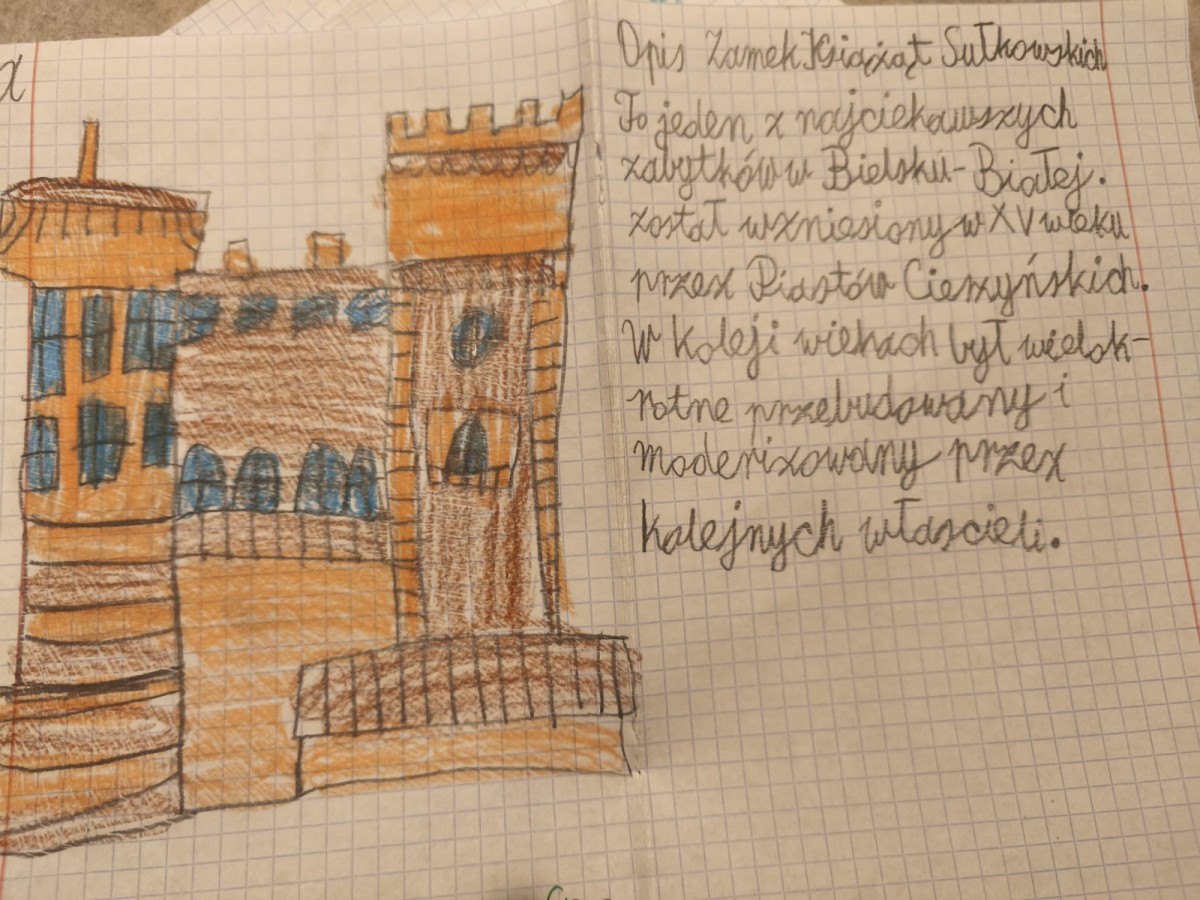 Opis Zamek Książąt Sułkowskich
To jeden z najciekawszych
zabytków w Bielsku-Białej.
został wzniesiony w XV wieku
przez Piastów Cieszyńskich.
W koleji wiekach był wielok-
rotne przebudowany i
moderizowany przez
kolejnych włascieli.